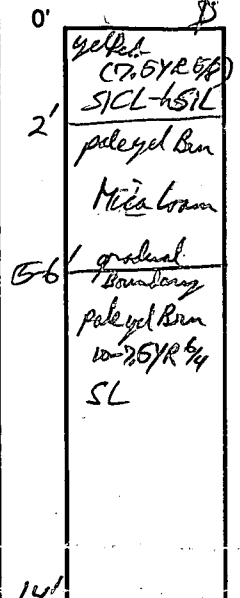 0'
yel Red
(7.5YR 5/8)
SICL-hSIL
2'
pale yel Brn
Mica Loam
5-6' gradual
Boundary
pale yel Brn
10-7.5YR 6/4
SL
14'